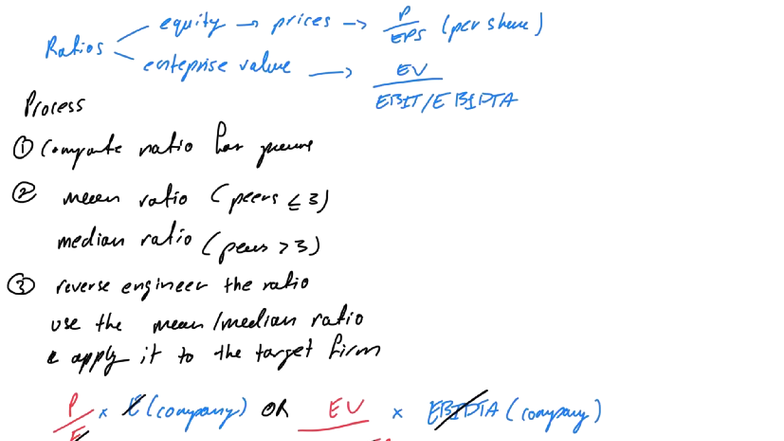 Ratios
equity → prices → P/EPS (per share)
enteprise value → EV
EBIT/EBIDTA
Process
① Compute ratio for
② mean ratio (peers ≤ 3)
median ratio (peers > 3)
③ reverse engineer the ratio
use the mean/median ratio
& apply it to the target firm
P/E × E (company) OR EV × EBIDTA (company)